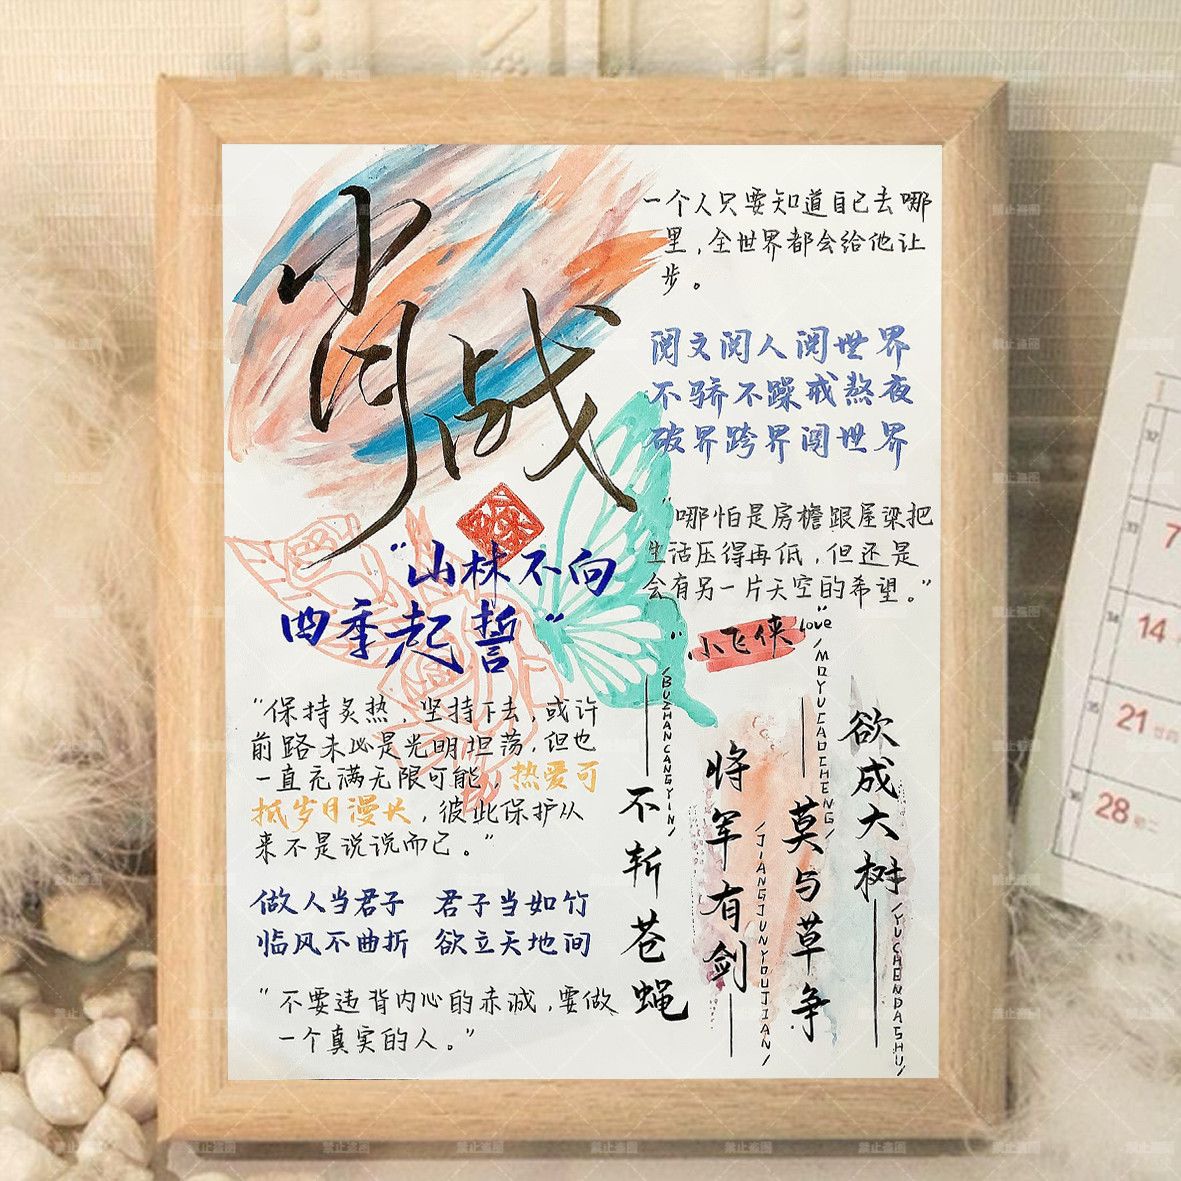 肖战
一个人只要知道自己去哪
里，全世界都会给他让
步。
阅文阅人阅世界
不骄不躁戒熬夜
破界跨界闯世界
“哪怕是房檐跟屋梁把
生活压得再低，但还是
会有另一片天空的希望。”
“山林不向
四季起誓”
“小飞侠”
love
“保持炙热，坚持下去，或许
前路未必是光明坦荡，但也
一直充满无限可能，热爱可
抵岁月漫长，彼此保护从
来不是说说而已。”
做人当君子 君子当如竹
临风不曲折 欲立天地间
“不要违背内心的赤诚，要做
一个真实的人。”
欲成大树
/YUCHENDASHU/
莫与草争
/MOYUCAOZHENG/
将军有剑
/JIANGJUNYOUJIAN/
不斩苍蝇
/BUZHANCANGYIN/
7
14
21
28
禁止盗图